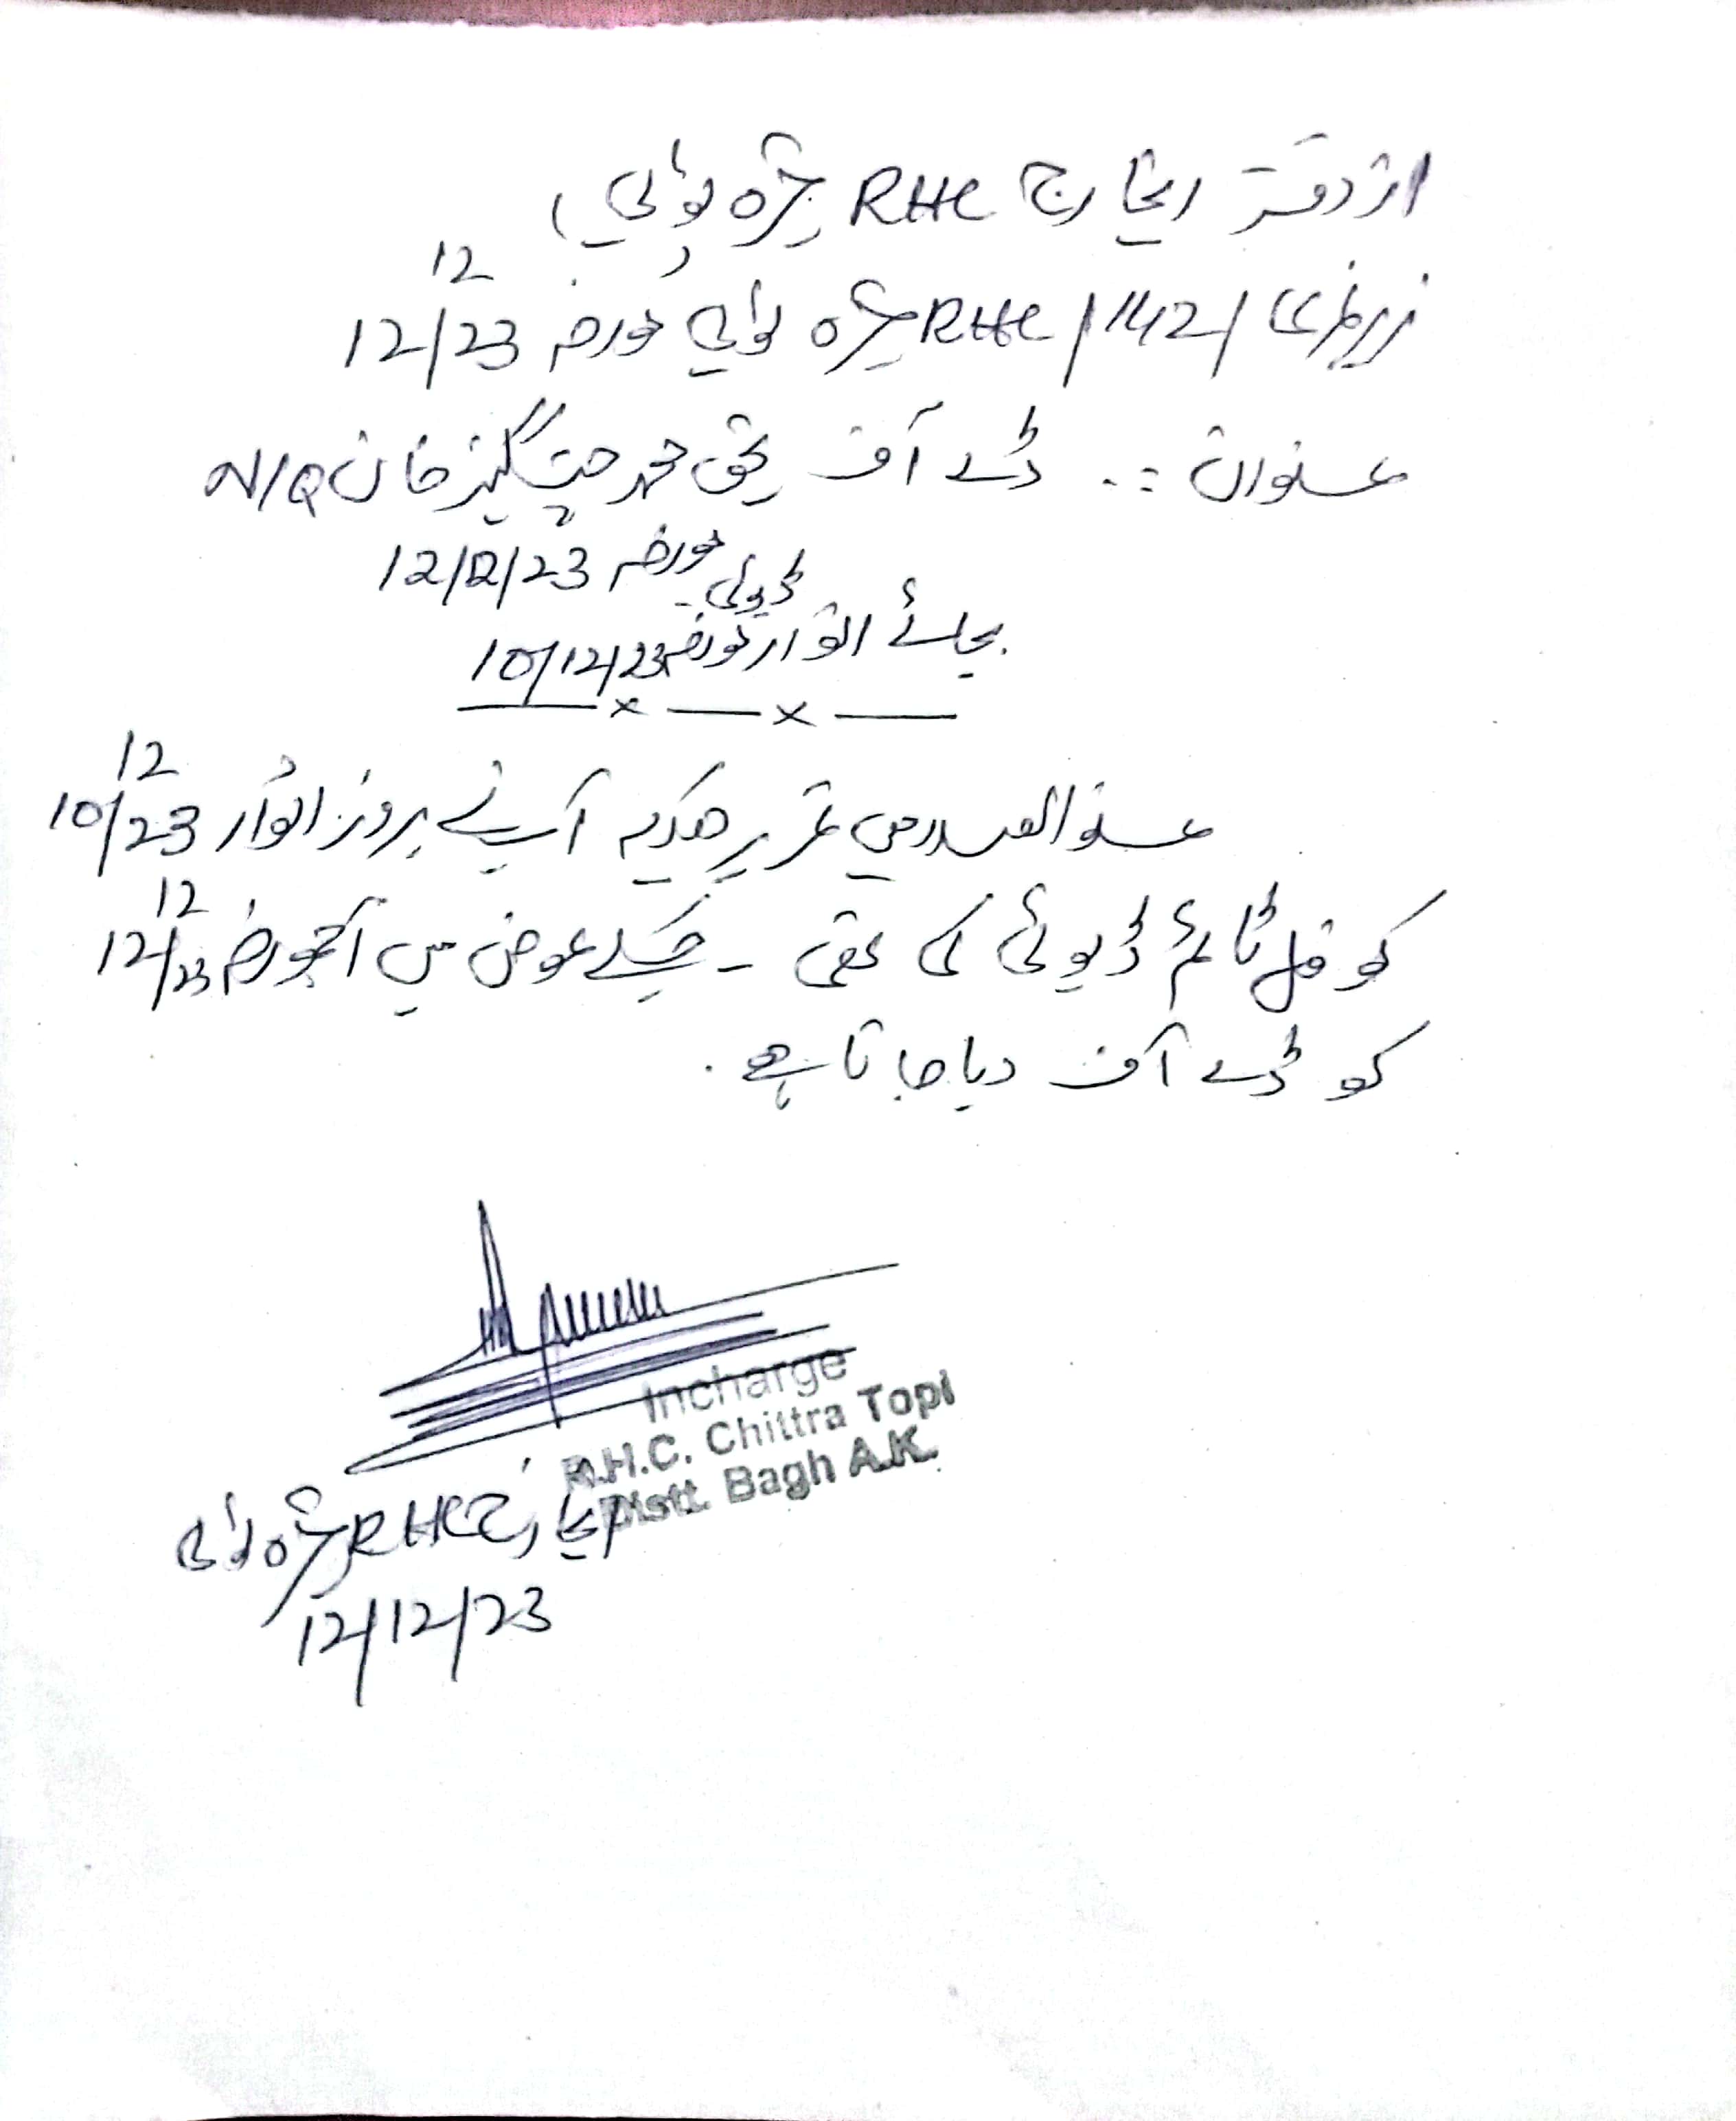 از دفتر انچارج RHC چترہ ٹوپی
زیرنمبری / 142 / RHC چترہ ٹوپی مورخہ 12/12/23
عنوان :۔ ڈے آف بحق محمد چنگیز خان N/Q
مورخہ 12/12/23
بجائے ڈیوٹی اتوار مورخہ 10/12/23
عنوان الصدر میں تحریر ھیکہ آپ نے بروز اتوار 10/12/23
کو فل ٹائم ڈیوٹی کی تھی ۔ جسکے عوض میں آج مورخہ 12/12/23
کو ڈے آف دیا جاتا ہے ۔
Incharge
R.H.C. Chittra Topi
Distt. Bagh A.K.
انچارج RHC چترہ ٹوپی
12/12/23